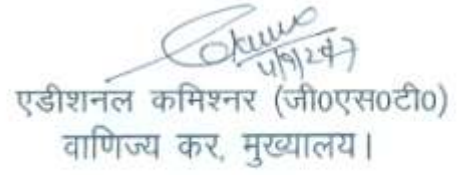 एडीशनल कमिश्नर (जी0एस0टी0)
वाणिज्य कर, मुख्यालय।